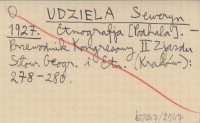 UDZIELA Seweryn
1927. Etnografja [Podhala]. —
Przewodnik Kongresowy II Zjazdu
Stow. Geogr. i Etn. (Kraków):
278-280.